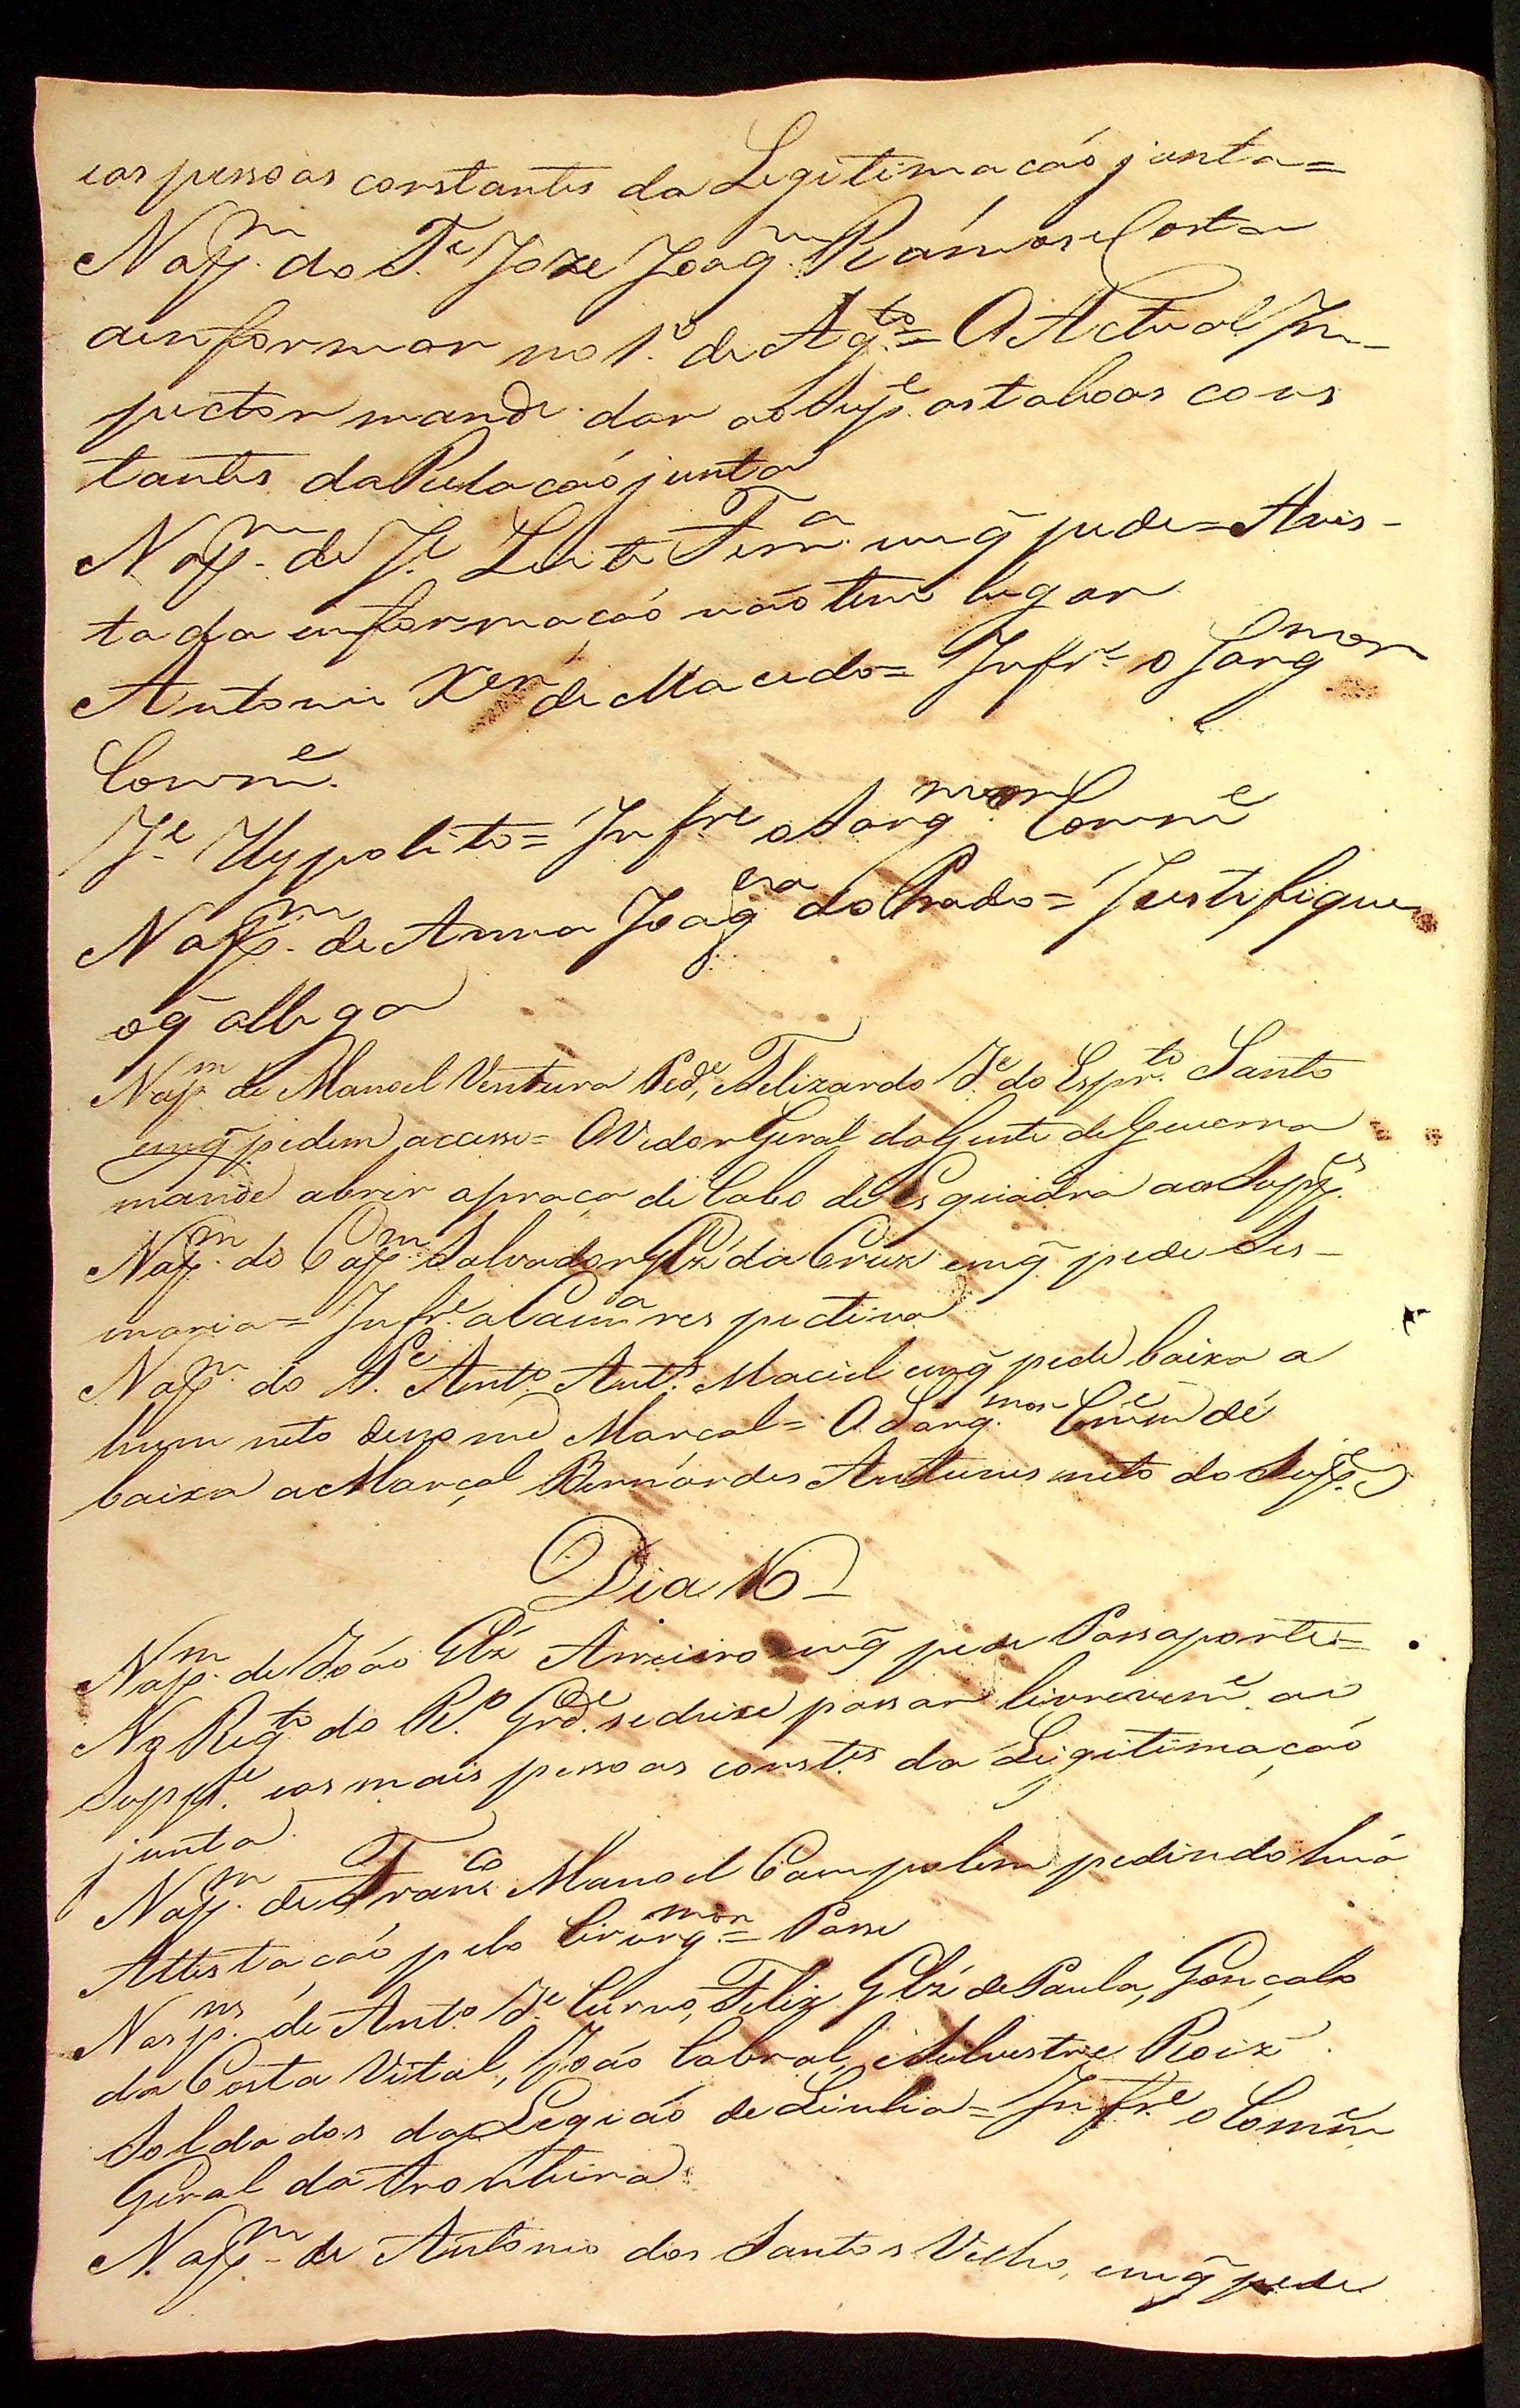 eas pessoas constantes da Legitimacaõ junta=
Na pp.m do T.e Joze Joaq.m Ramos e Costa
a informar no 1.º de Ag.to= O Actual Ins-
pector mande dar ao Sup.e as taboas cons
tantes da Relacaõ junta
Na pp.m de J.e Leite Ferr.a em q̃ pede= Avis-
ta da informacaõ naõ tem lugar
Antonio Xer de Macedo= Infr.e o Sarg mor
Comm.e
J.e Hypolito= Infr.e o Sarg.mor Comm.e
Na pp.m de Anna Joaq.na do Prado= Justifique
o q̃ allega
Na pp.m de Manoel Ventura Felizardo J.e do Espr.to Santo
em q̃ pedem accesso= O Vedor Geral da Gente de Guerra
mande abrir a praça de Cabo de Esquadra aos Supp.es
Na pp.m do Cap.m Salvador Glz' da Cruz em q̃ pede Ses-
maria= Infr.e a Cam.a respectiva
Na pp.m do Ant.o Ant.s Maciel em q̃ pede baixa a
hum neto de nome Marcal= O Sarg.mor Comm.e dé
baixa a Marçal Bernardes Antunes neto do Sup.e
Dia 16
Na pp.m de Joaõ Glz' em q̃ pede Passaporte=
No Reg.to do R.º Gr.de se deixe passar livrem.e ao
Supp.e eas mais pessoas const.es da Legitimaçaõ
junta
Na pp.m de Franc.co Manoel Campolim pedindo huã
Attestacaõ pelo Cirurg.mor= Passe
Nas pp.ns de Ant.o J.e Felix Glz' de Paula, Gonçalo
da Costa Vital, Joaõ Cabral, e Silvestre Roiz'
Soldados da Legiaõ de Linha= Infr.e o Comm.e
Geral da Fronteira
Na pp.m de Antonio dos Santos Velho, em q̃ pede